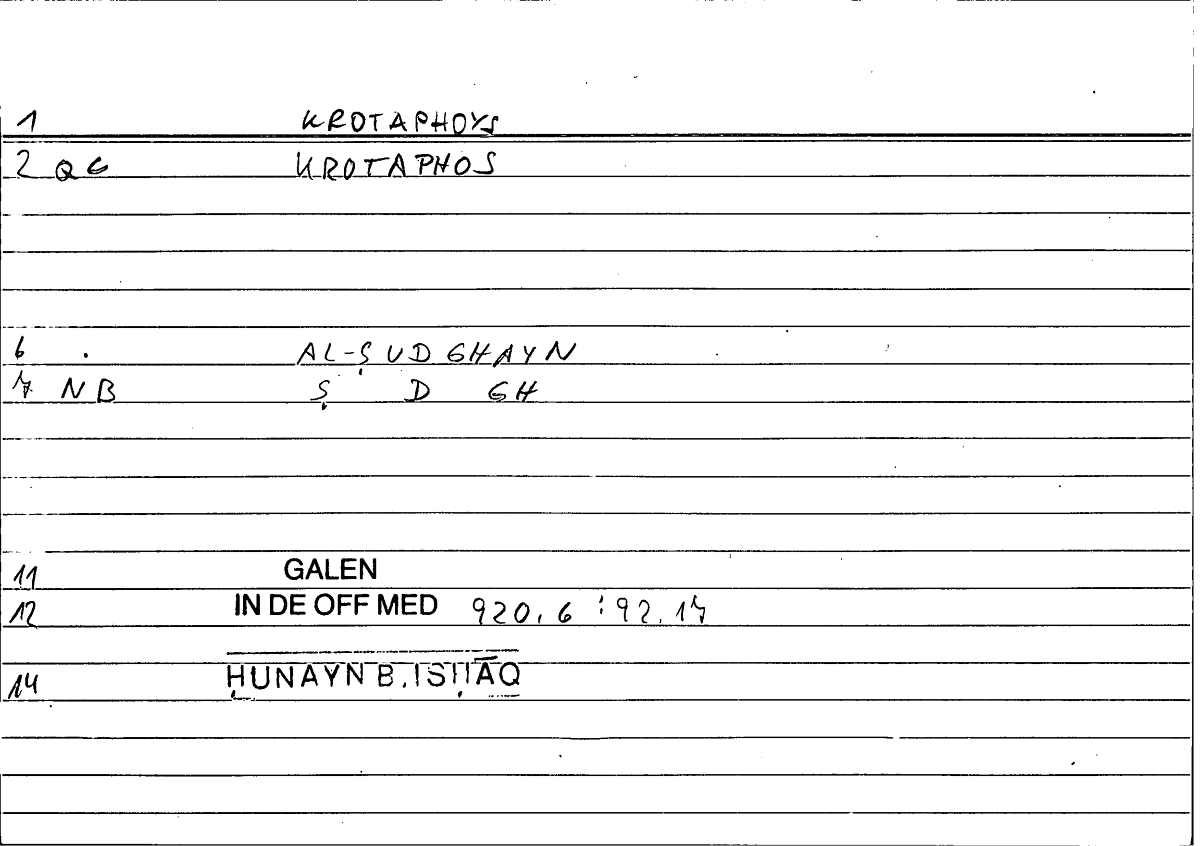 1 KROTAPHOYS
2 QG KROTAPHOS
6 AL-ṢUDGHAYN
7 NB Ṣ D GH
11 GALEN
12 IN DE OFF MED 920,6 : 92.17
14 ḤUNAYN B. ISḤĀQ